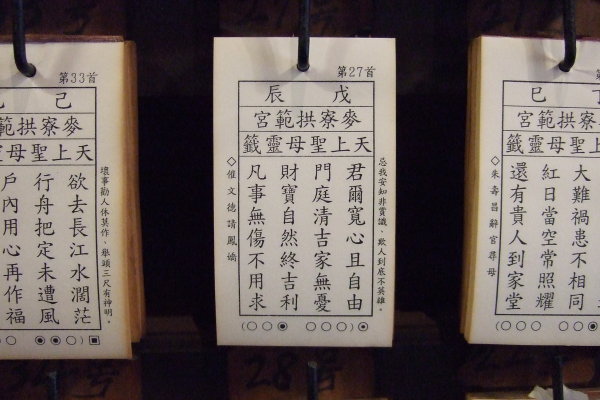 第33首
己
麥寮拱範
天上聖母
壞事勸人休莫作、舉頭三尺有神明。
欲去長江水濶茫
行舟把定未遭風
戶內用心再作福
第27首
戊辰
麥寮拱範宮
天上聖母靈籤
忌我安知非賞識、欺人到底不英雄。
君爾寬心且自由
門庭清吉家無憂
財寶自然終吉利
凡事無傷不用求
◇催文德請鳳嬌
第
丁巳
寮拱範宮
上聖母靈籤
大難禍患不相同
紅日當空常照耀
還有貴人到家堂
◇朱壽昌辭官尋母
34号
28号